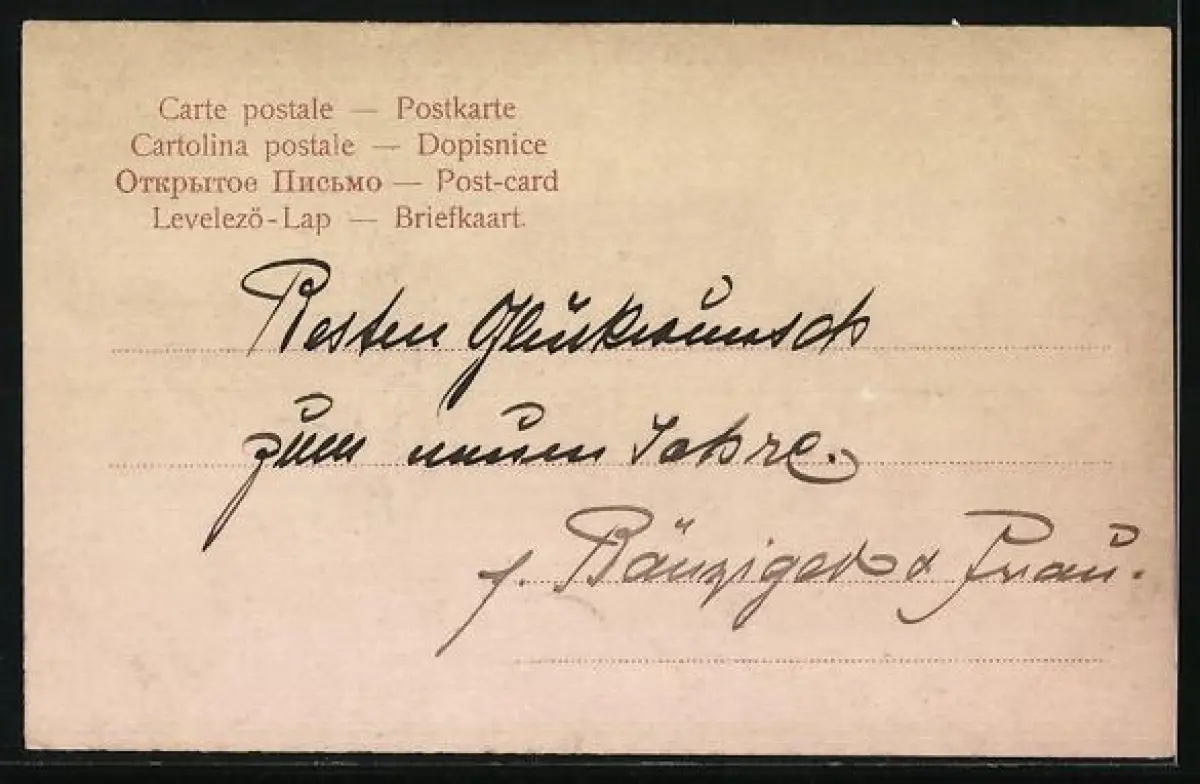 Carte postale — Postkarte
Cartolina postale — Dopisnice
Открытое Письмо — Post-card
Levelező-Lap — Briefkaart.
Besten Glückwunsch
zum neuen Jahre.
J. Bänziger & Frau.